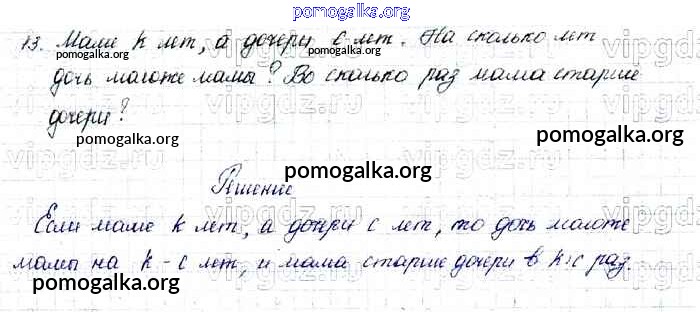 pomogalka.org
13. Маме k лет, а дочери с лет. На сколько лет
дочь моложе мамы? Во сколько раз мама старше
дочери?
pomogalka.org
pomogalka.org
vipgdz.ru
pomogalka.org
pomogalka.org
Решение
Если маме k лет, а дочери с лет, то дочь моложе
мамы на k - с лет, и мама старше дочери в k:с раз.
pomogalka.org
pomogalka.org